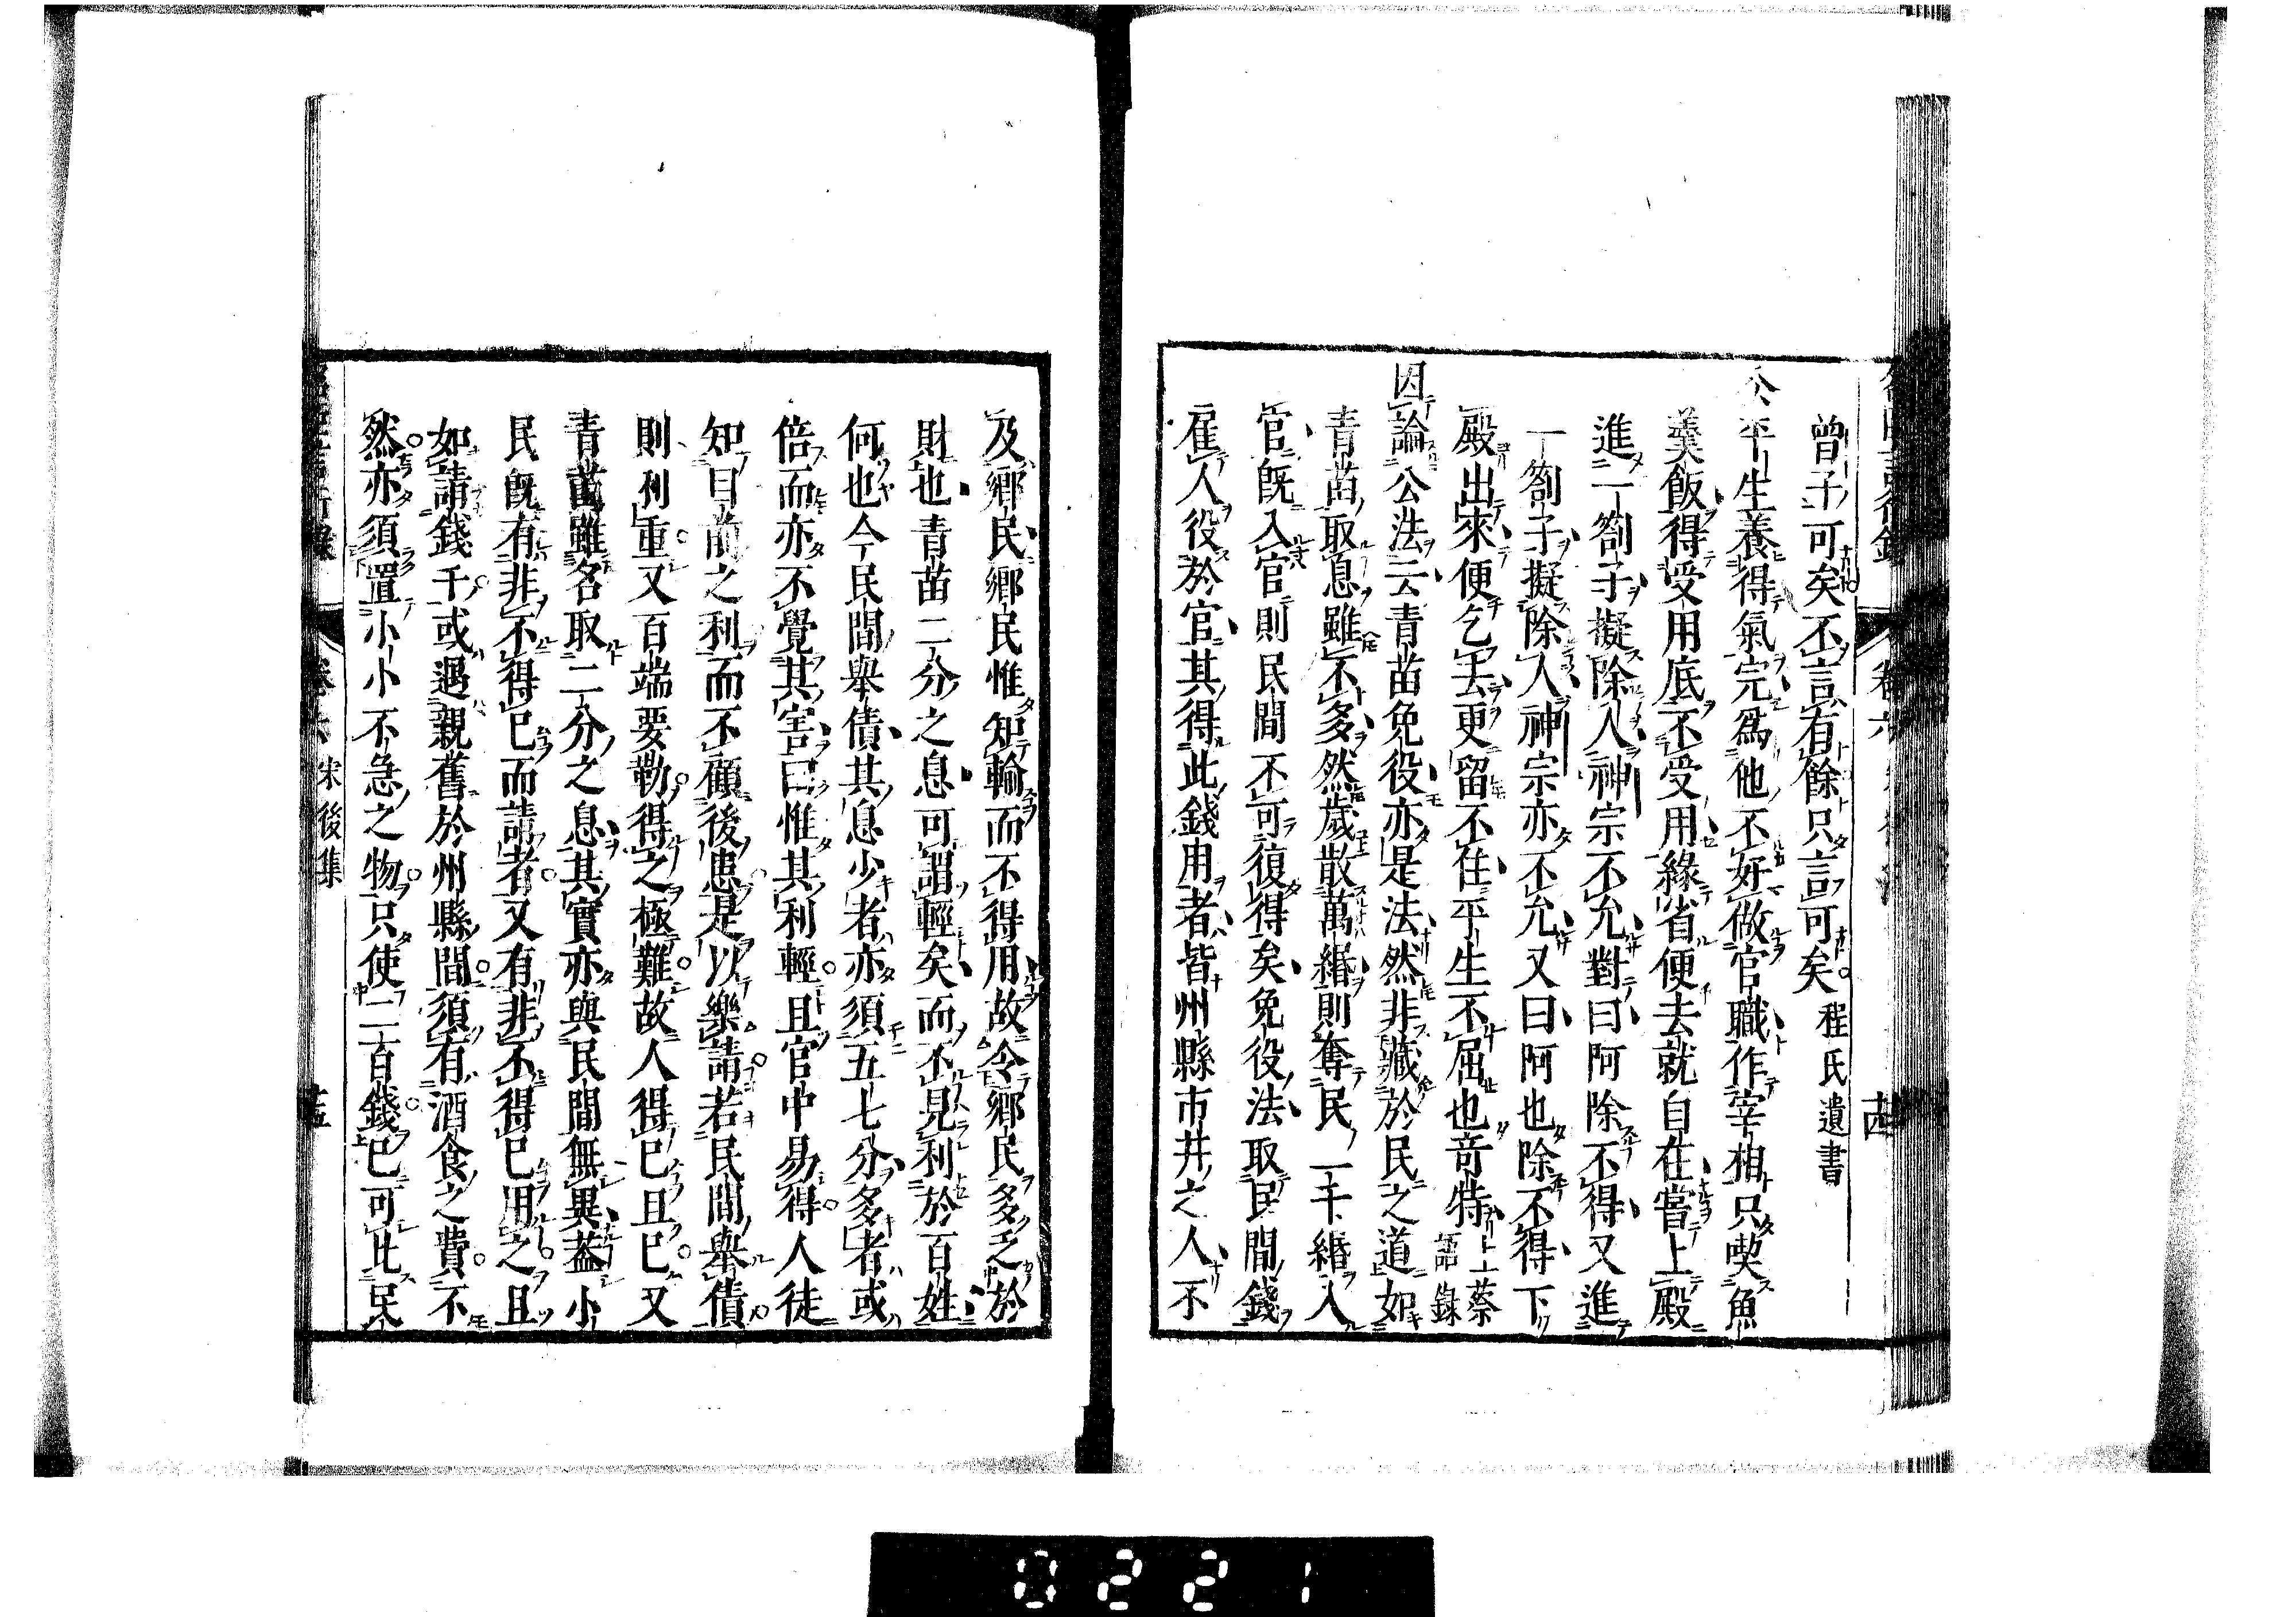 曾子可矣不言有餘只言可矣程氏遺書
公平生養得氣完爲他不好做官職作宰相只喫魚
羹飯得受用底不受用緣省便去就自在嘗上殿
進一劄子擬除人神宗不允對曰阿除不得又進
一劄子擬除人神宗亦不允又曰阿也除不得下
殿出來便乞去更留不住平生不屈也奇特上蔡語錄
因論公法云青苗免役亦是法然非藏於民之道如
青苗取息雖不多然歲散萬緡則奪民二千緡入
官既入官則民間不可復得矣免役法取民間錢
雇人役於官其得此錢用者皆州縣市井之人不
及鄉民鄉民惟知輸而不得用故令鄉民多乏於
財也青苗二分之息可謂輕矣而不見利於百姓
何也今民間舉債其息少者亦須五七分多者或
倍而亦不覺其害曰惟其利輕且官中易得人徒
知目前之利而不顧後患是以樂請若民間舉債
則利重又百端要勒得之極難故人得已且已又
青苗雖名取二分之息其實亦與民間無異蓋小
民既有非不得已而請者又有非不得已用之且
如請錢千或遇親舊於州縣間須有酒食之費不
然亦須置小小不急之物只使二百錢已可比民
卷六
宋後集
0221